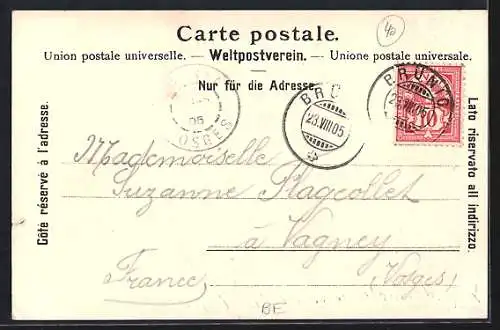 Carte postale.
Union postale universelle. — Weltpostverein. — Unione postale universale.
Nur für die Adresse.
Côté réservé à l'adresse.
Lato riservato all indirizzo.
BRÜNIG
23.VIII.05
10
BRÜ
23.VIII.05
05
VOSGES
Mademoiselle
Suzanne Flageollet
à Vagney
France (Vosges)
BE